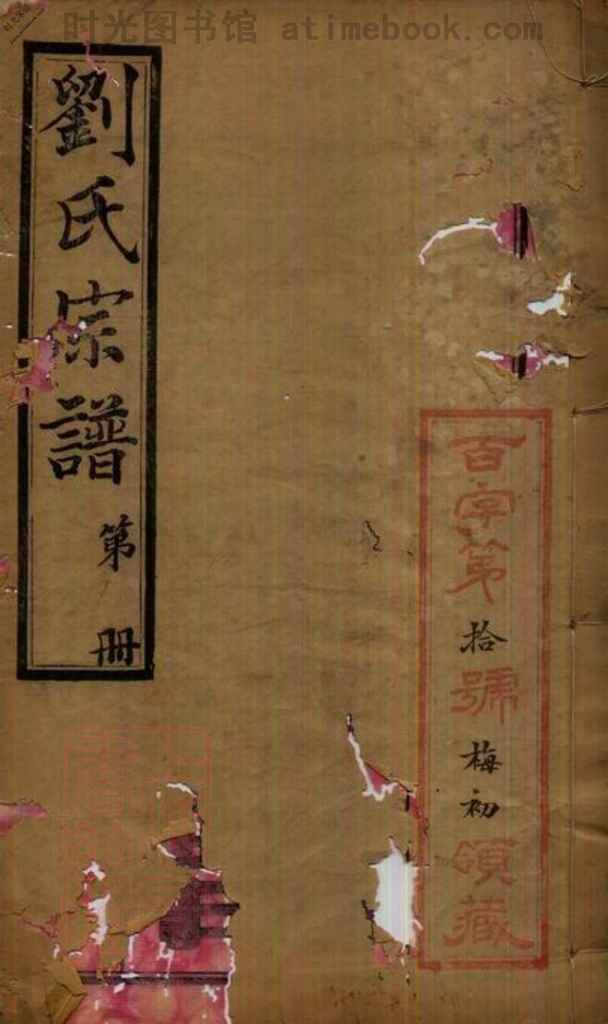 时光图书馆 atimebook.com
百字第拾號梅初領藏
劉氏宗譜
第 冊